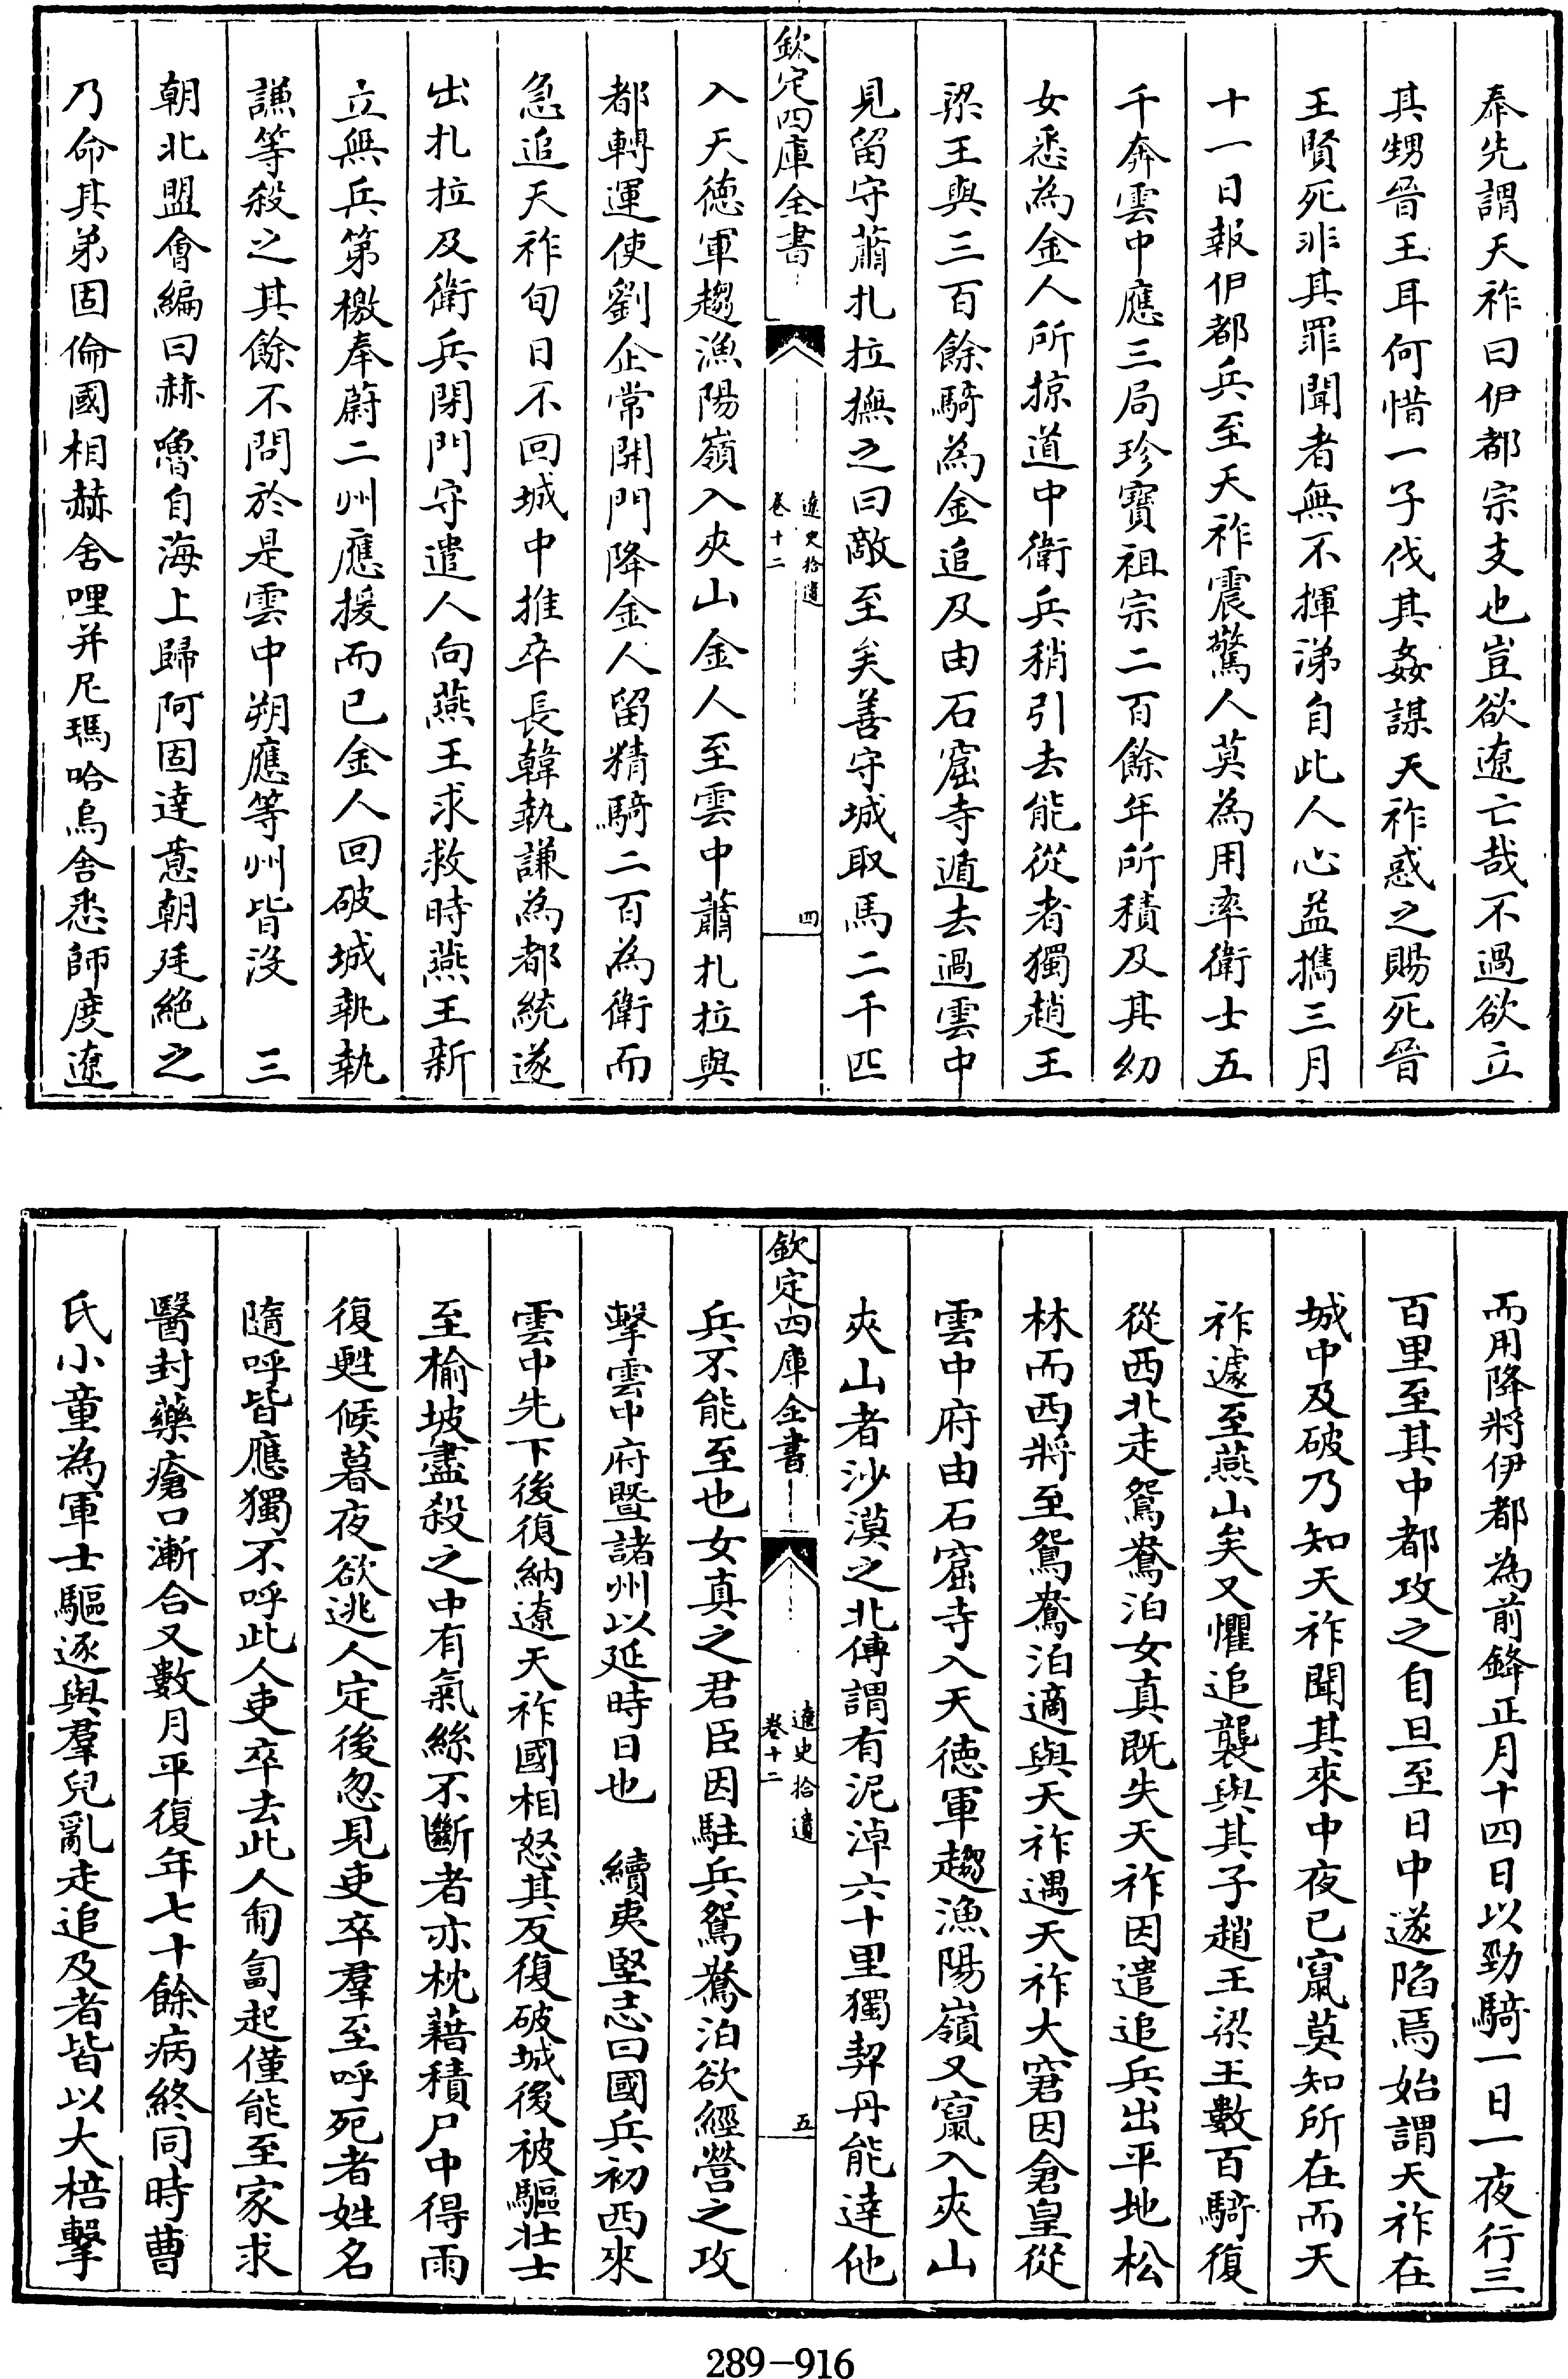 奉先謂天祚曰伊都宗支也豈欲遼亡哉不過欲立
其甥晉王耳何惜一子伐其姦謀天祚惑之賜死晉
王賢死非其罪聞者無不揮涕自此人心益攜三月
十一日報伊都兵至天祚震驚人莫為用率衛士五
千奔雲中應三局珍寶祖宗二百餘年所積及其幼
女悉為金人所掠道中衛兵稍引去能從者獨趙王
梁王與三百餘騎為金追及由石窟寺遁去過雲中
見留守蕭扎拉撫之曰敵至矣善守城取馬二千匹
欽定四庫全書
遼史拾遺
卷十二
四
入天德軍趨漁陽嶺入夾山金人至雲中蕭扎拉與
都轉運使劉企常開門降金人留精騎二百為衛而
急追天祚旬日不回城中推卒長韓執謙為都統遂
出扎拉及衛兵閉門守遣人向燕王求救時燕王新
立無兵第檄奉蔚二州應援而已金人回破城執執
謙等殺之其餘不問於是雲中朔應等州皆沒　三
朝北盟會編曰赫嚕自海上歸阿固達意朝廷絕之
乃命其弟固倫國相赫舍哩并尼瑪哈烏舍悉師度遼
而用降將伊都為前鋒正月十四日以勁騎一日一夜行三
百里至其中都攻之自旦至日中遂陷焉始謂天祚在
城中及破乃知天祚聞其來中夜已竄莫知所在而天
祚遽至燕山矣又懼追襲與其子趙王梁王數百騎復
從西北走鴛鴦泊女真既失天祚因遣追兵出平地松
林而西將至鴛鴦泊適與天祚遇天祚大窘因倉皇從
雲中府由石窟寺入天德軍趨漁陽嶺又竄入夾山
夾山者沙漠之北傳謂有泥淖六十里獨契丹能達他
欽定四庫全書
遼史拾遺
卷十二
五
兵不能至也女真之君臣因駐兵鴛鴦泊欲經營之攻
擊雲中府暨諸州以延時日也　續夷堅志曰國兵初西來
雲中先下後復納遼天祚國相怒其反復破城後被驅壯士
至榆坡盡殺之中有氣絲不斷者亦枕藉積尸中得雨
復甦候暮夜欲逃人定後忽見吏卒羣至呼死者姓名
隨呼皆應獨不呼此人吏卒去此人匍匐起僅能至家求
醫封藥瘡口漸合又數月平復年七十餘病終同時曹
氏小童為軍士驅逐與羣兒亂走追及者皆以大棓擊
289-916